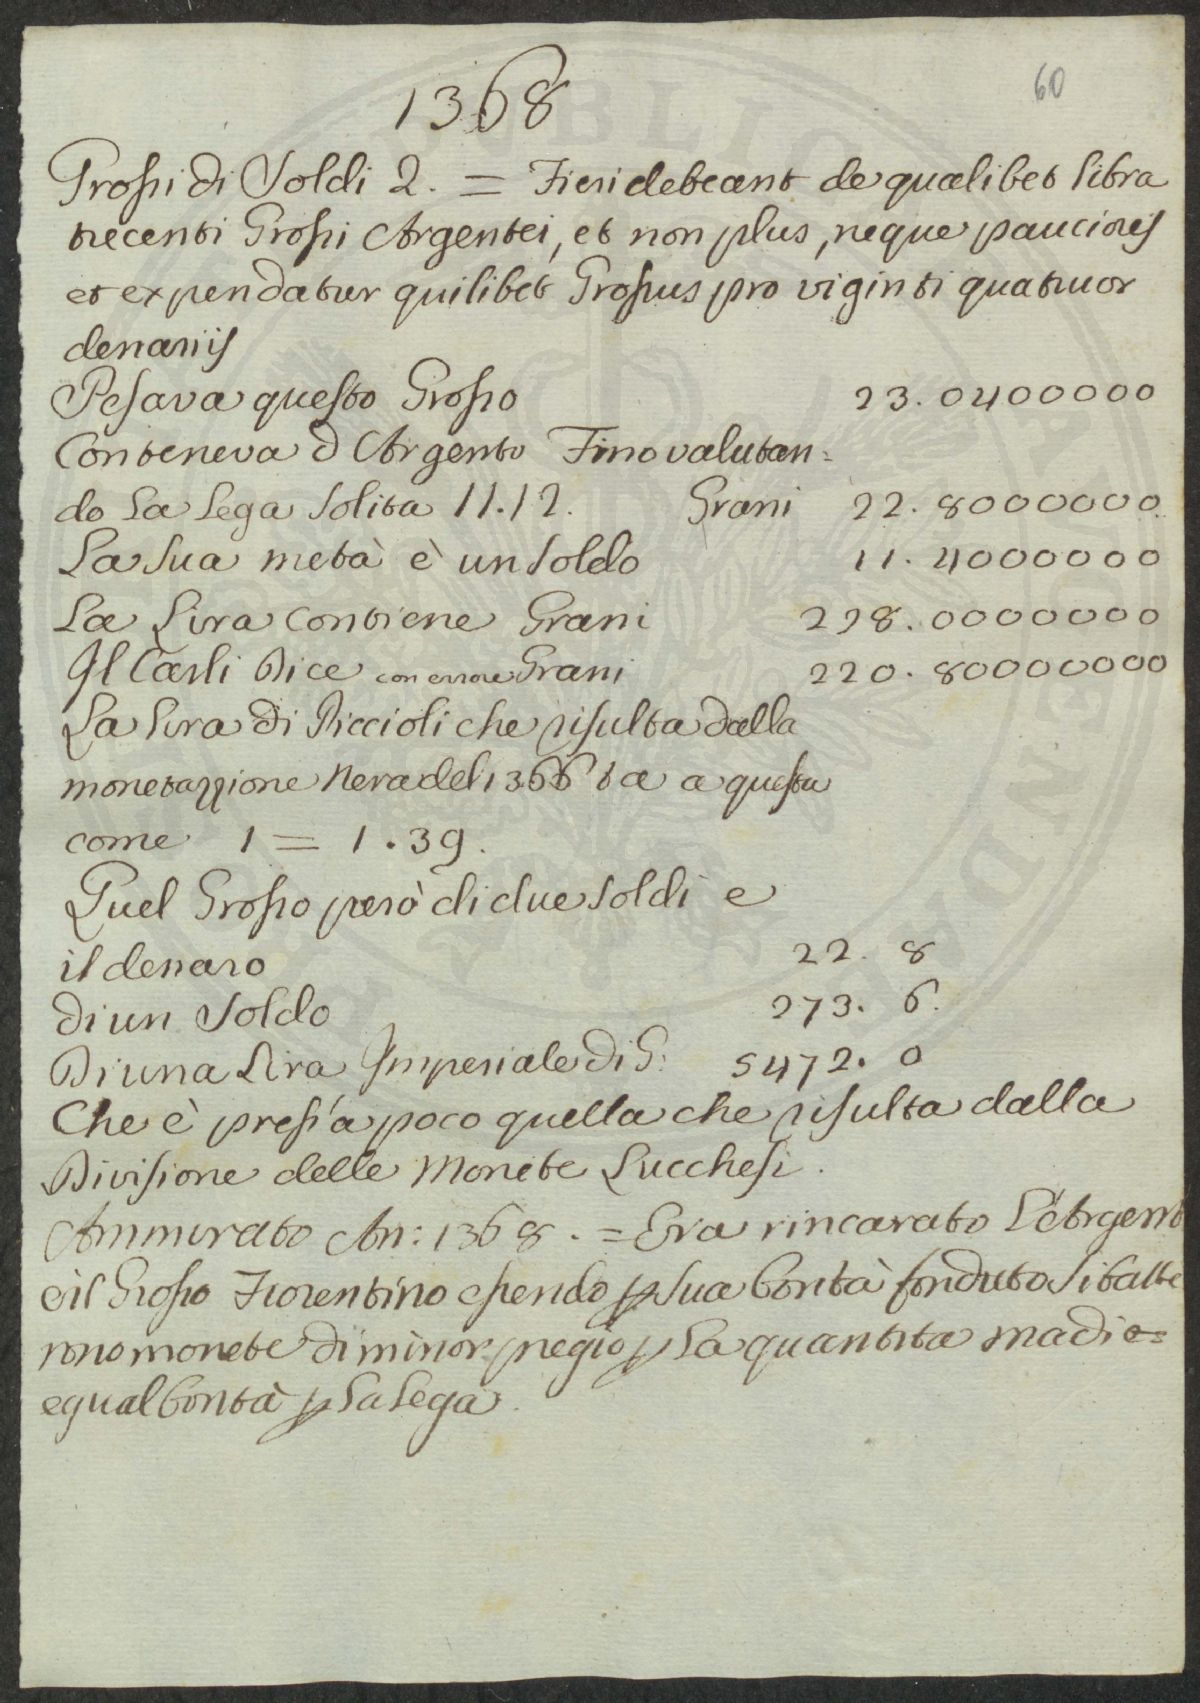 60
1368
Grossi di Soldi 2. = Fieri debeant de qualibet libra
trecenti Grossi Argentei, et non plus, neque pauciores
et expendatur quilibet Grossus pro viginti quatuor
denariis
Pesava questo Grosso 23.0400000
Conteneva d Argento Fino valutan=
do La Lega solita 11.12. Grani 22.8000000
La sua metà è un soldo 11.4000000
La Lira contiene Grani 228.0000000
Il Carli Dice con errore Grani 220.80000000
La lira di Piccioli che risulta dalla
monetazzione Nera del 1366 ta a questa
come 1 = 1.39.
Quel Grosso però di due soldi e
il denaro 22. 8
di un Soldo 273. 6.
Di una Lira Imperiale di G: 5472. 0
Che è press'a poco quella che risulta dalla
Divisione delle Monete Lucchesi.
Ammirato An: 1368. = Era rincarato L'Argent
e il Grosso Fiorentino essendo p sua bontà fonduto si batte
rono monete di minor pregio p La quantita ma di e=
egual bontà p La Lega.